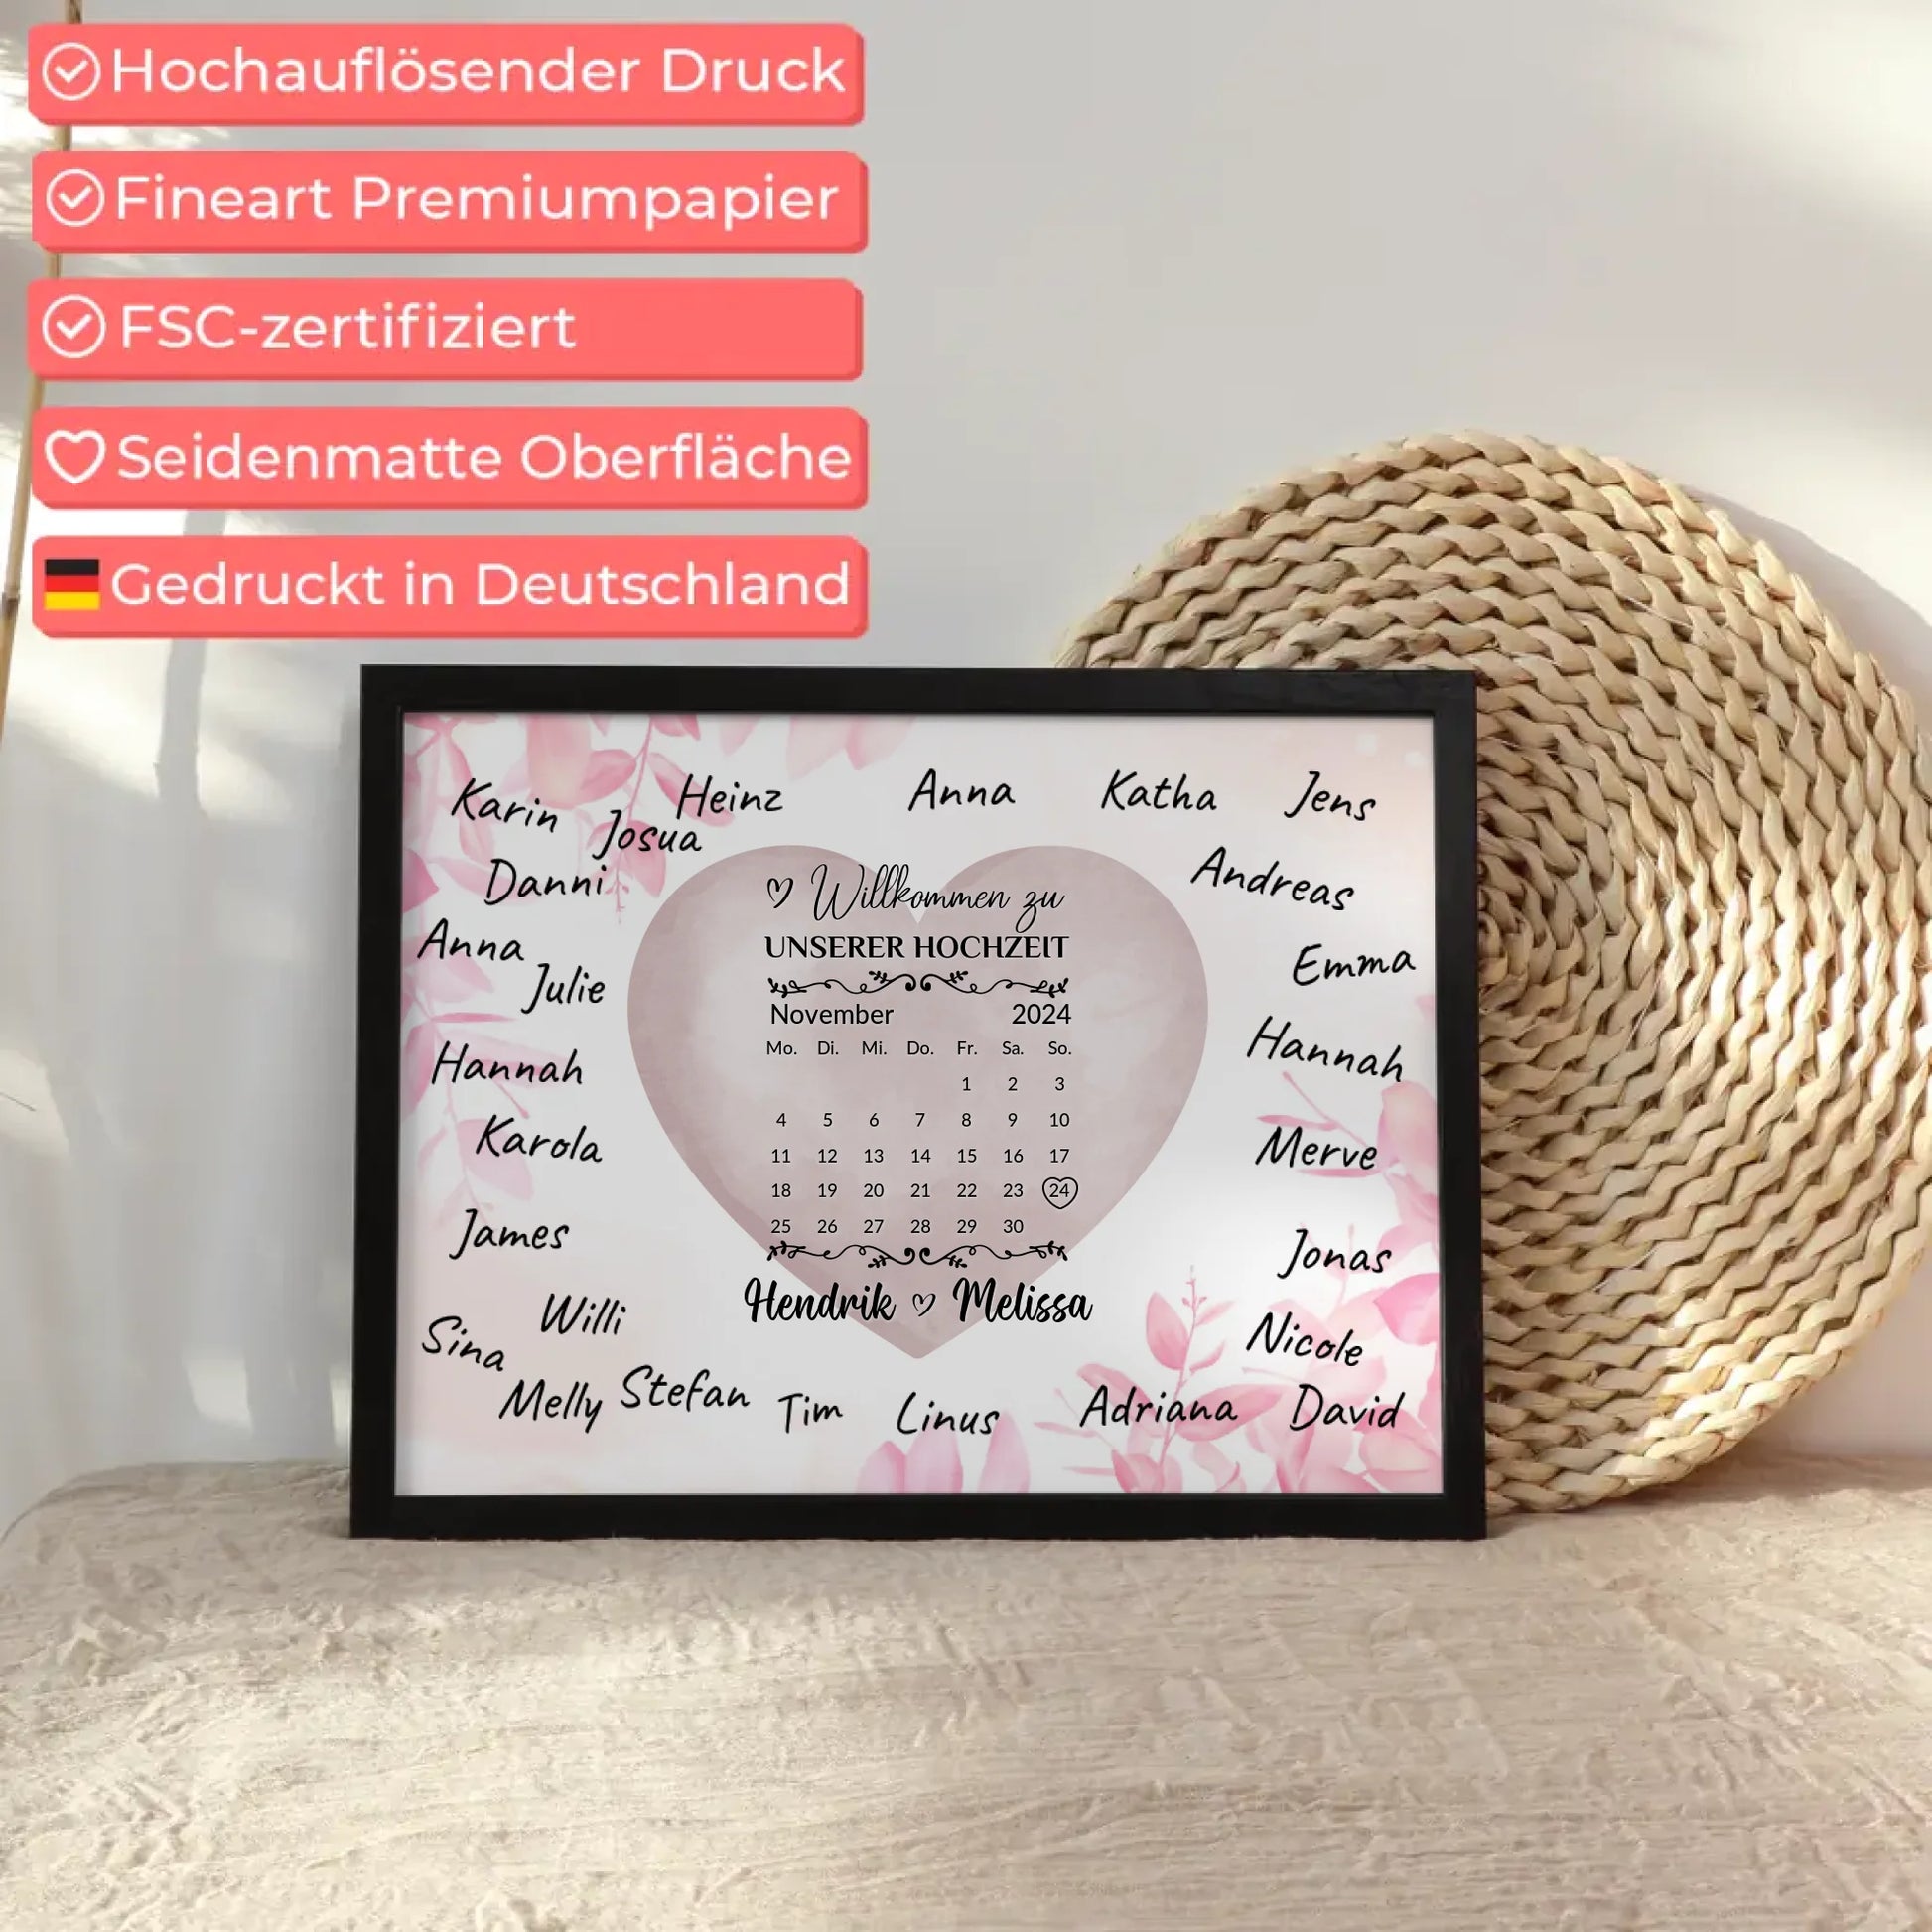 Hochauflösender Druck
Fineart Premiumpapier
FSC-zertifiziert
Seidenmatte Oberfläche
Gedruckt in Deutschland
Karin
Heinz
Josua
Anna
Katha
Jens
Danni
Andreas
Anna
Julie
Emma
Hannah
Hannah
Karola
Merve
James
Jonas
Willi
Sina
Nicole
Melly
Stefan
Tim
Linus
Adriana
David
Willkommen zu
UNSERER HOCHZEIT
November 2024
Mo. Di. Mi. Do. Fr. Sa. So.
1 2 3
4 5 6 7 8 9 10
11 12 13 14 15 16 17
18 19 20 21 22 23 24
25 26 27 28 29 30
Hendrik ♡ Melissa